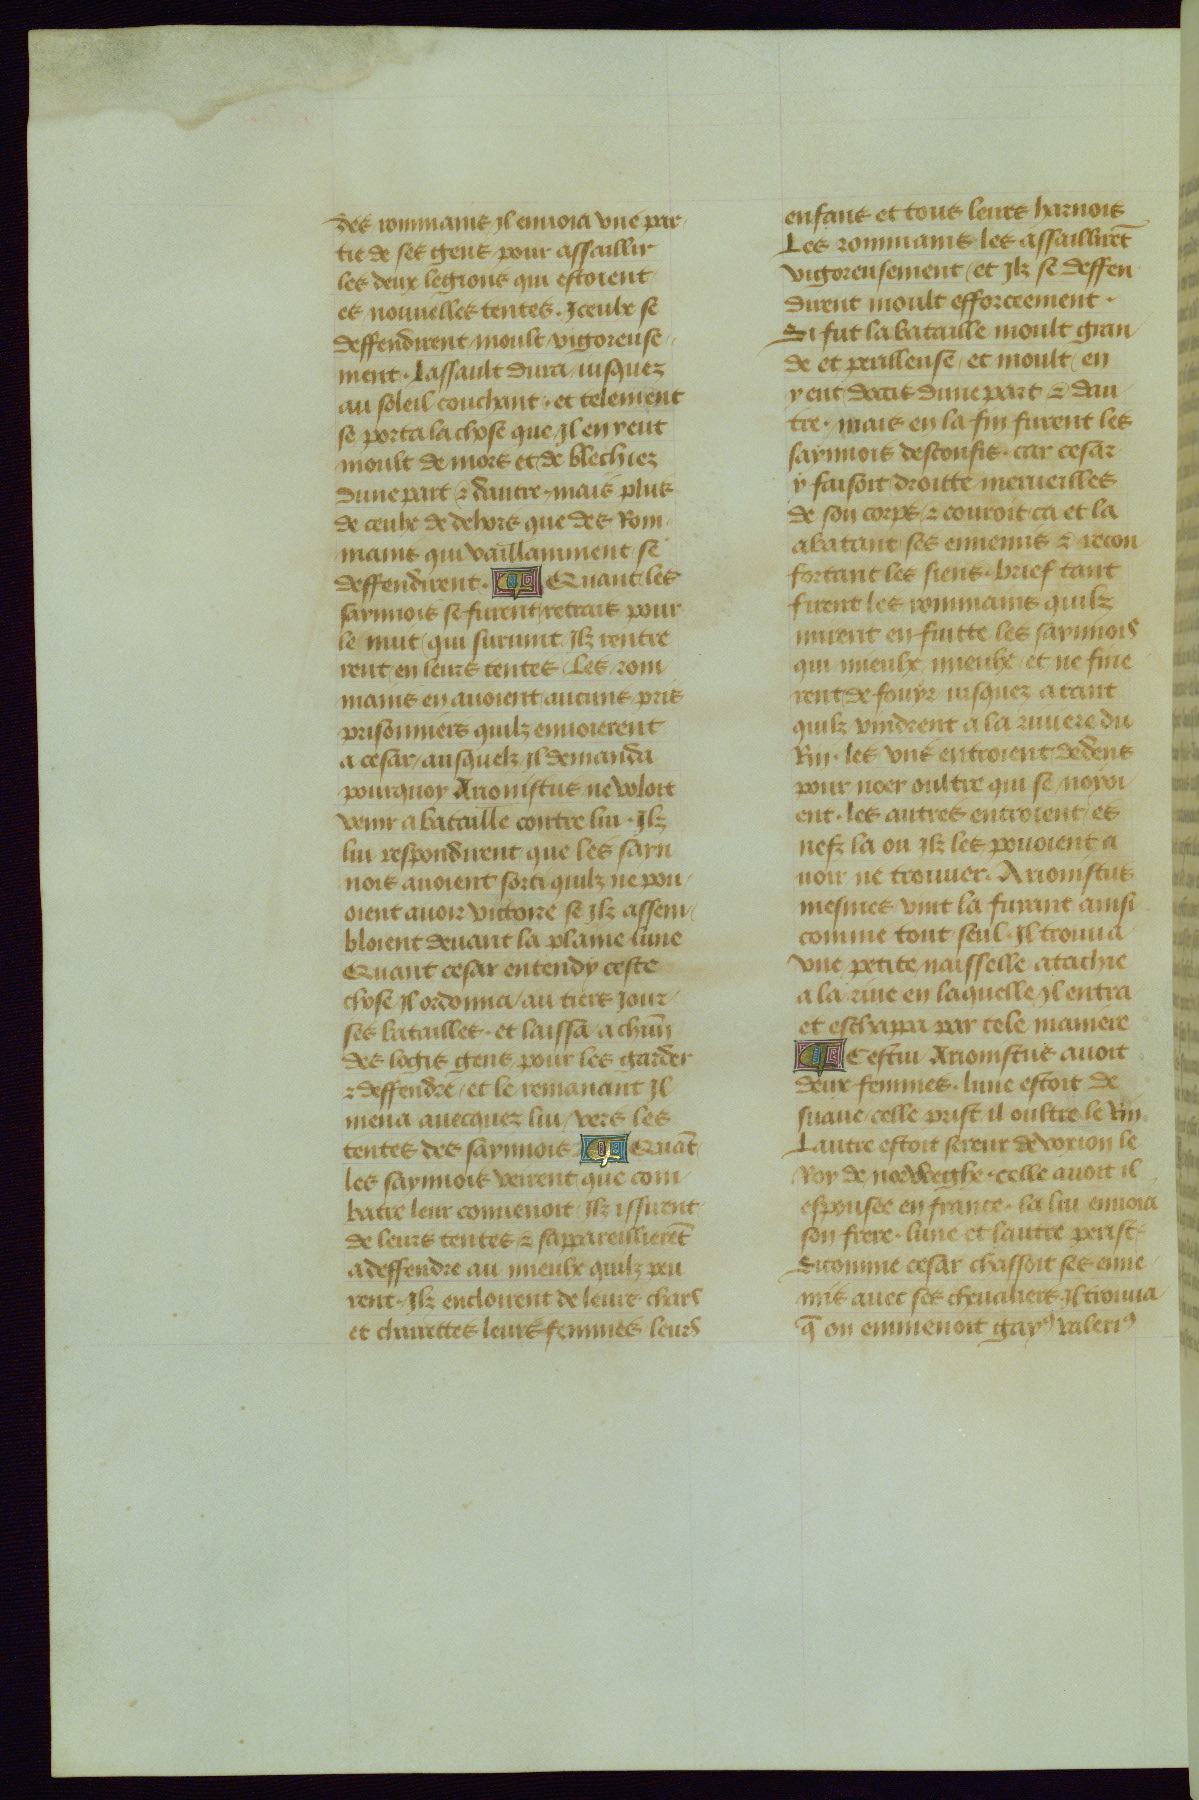 des rommains il enuoia vne par
tie de ses gens pour assaillir
les deux legions qui estoient
es nouuelles tentes. Iceulx se
deffendirent moult vigoreuse
ment. Lassault dura iusquez
au soleil couchant. et telement
se porta la chose que il en y eut
moult de mors et de blechiez
dune part ⁊ dautre. mais plus
de ceulx de dehors que des Rom
mains qui vaillamment se
deffendirent. ¶ Quant les
saynnois se furent retrais pour
le nuit qui suruint ilz rentre
rent en leurs tentes Les rom
mains en auoient aucuns pris
prisonniers quilz enuoierent
a cesar / ausquelz il demanda
pourquoy Arionistus ne voloit
venir a bataille contre lui. Ilz
lui respondirent que les sayn
nois auoient sorti quilz ne pou
oient auoir victoire se ilz assem
bloient deuant la plaine lune
Quant cesar entendy ceste
chose il ordonna / au tiers Jour
ses batailles. et laissa a chũn
des logis gens pour les garder
⁊ deffendre / et le remanant il
mena auecquez lui vers les
tentes des saynnois ¶ Quãt
les saynnois veirent que com
batre leur conuenoit Ilz issirent
de leurs tentes ⁊ sappareillierẽt
a deffendre au mieulx quilz peu
rent. Ilz enclouirent de leurs chars
et charettes leurs femmes leurs
enfans et tous leurs harnois
Les rommains les assaillirẽt
vigoreusement et Ilz se deffen
dirent moult efforceement.
Si fut la bataille moult gran
de et perilleuse et moult en
y eut doccis dune part ⁊ dau
tre. mais en la fin furent les
saynnois desconfis. car cesar
y faisoit droitte merueilles
de son corps ⁊ couroit ca et la
abatant ses ennemis ⁊ recon
fortant les siens. brief tant
firent les rommains quilz
mirent en fuitte les saynnois
qui mieulx mieulx et ne fine
rent de fouyr iusquez a tant
quilz vindrent a la riuiere du
Rin. les vns entroient dedens
pour noer oultre qui se noyoi
ent. les autres entroient es
nefz la ou ilz les pouoient a
uoir ne trouuer. Arionistus
mesmes vint la fuiant ainsi
comme tout seul. Il trouua
vne petite naisselle atachie
a la riue en laquelle il entra
et eschapa par tele maniere
¶ Cestui Arionistus auoit
deux femmes. lune estoit de
suaue / celle prist il oultre le Rin
Lautre estoit sereur de voxion le
Roy de norweghe. celle auoit il
espousee en france. la lui enuoia
son frere. lune et lautre perist.
Sicomme cesar chassoit ses enne
mis auec ses cheualiers il trouua
q̃ on emmenoit gayꝰ valeriꝰ